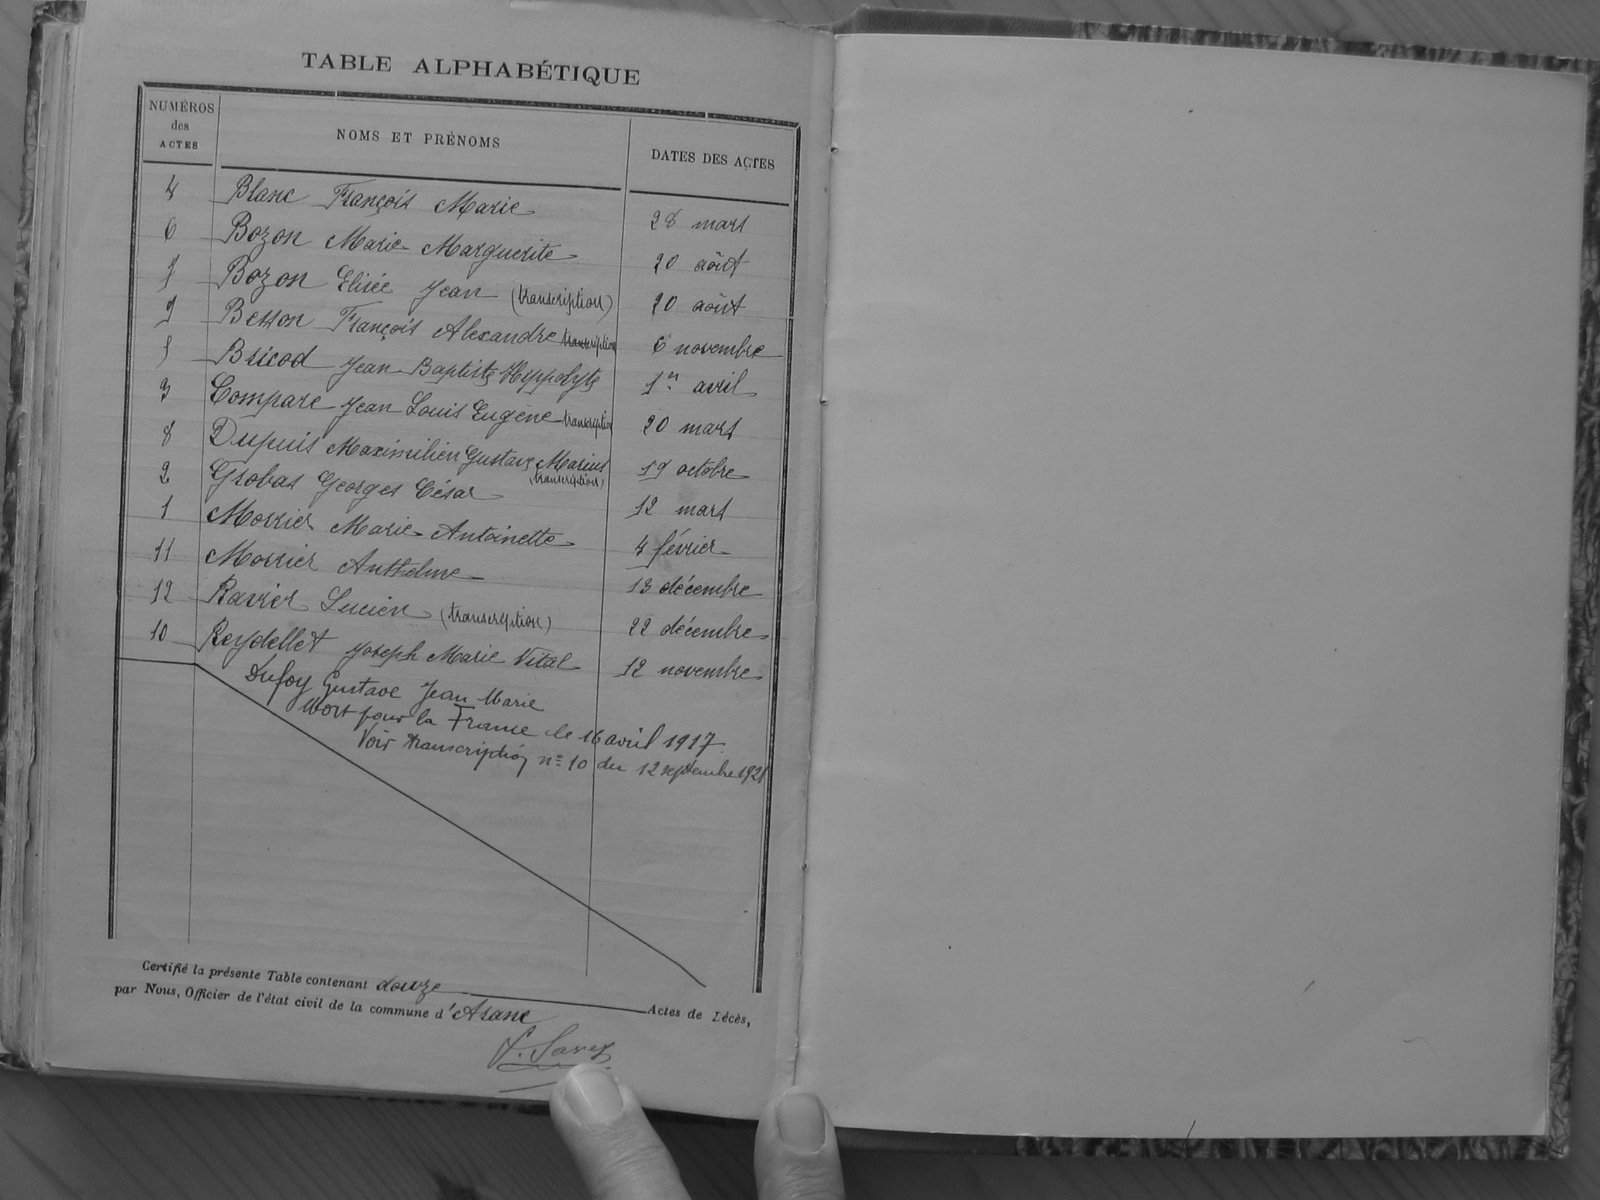 TABLE ALPHABÉTIQUE
NUMÉROS des ACTES NOMS ET PRÉNOMS DATES DES ACTES
4 Blanc François Marie 28 mars
6 Bozon Marie Marguerite 20 août
7 Bozon Elisée Jean (transcription) 20 août
9 Besson François Alexandre transcription 6 novembre
5 Bricod Jean Baptiste Hyppolyte 1er avril
3 Compare Jean Louis Eugène transcription 20 mars
8 Dupuis Maximilien Gustave Marius (transcription) 19 octobre
2 Grobas Georges César 12 mars
1 Morrier Marie Antoinette 4 février
11 Morrier Anthelme 13 décembre
12 Ravier Lucien (transcription) 22 décembre
10 Reydellet Joseph Marie Vital 12 novembre
Dufoy Gustave Jean Marie
Mort pour la France le 16 avril 1917.
Voir transcription n° 10 du 12 septembre 1921
Certifié la présente Table contenant douze Actes de Décès,
par Nous, Officier de l'état civil de la commune d'